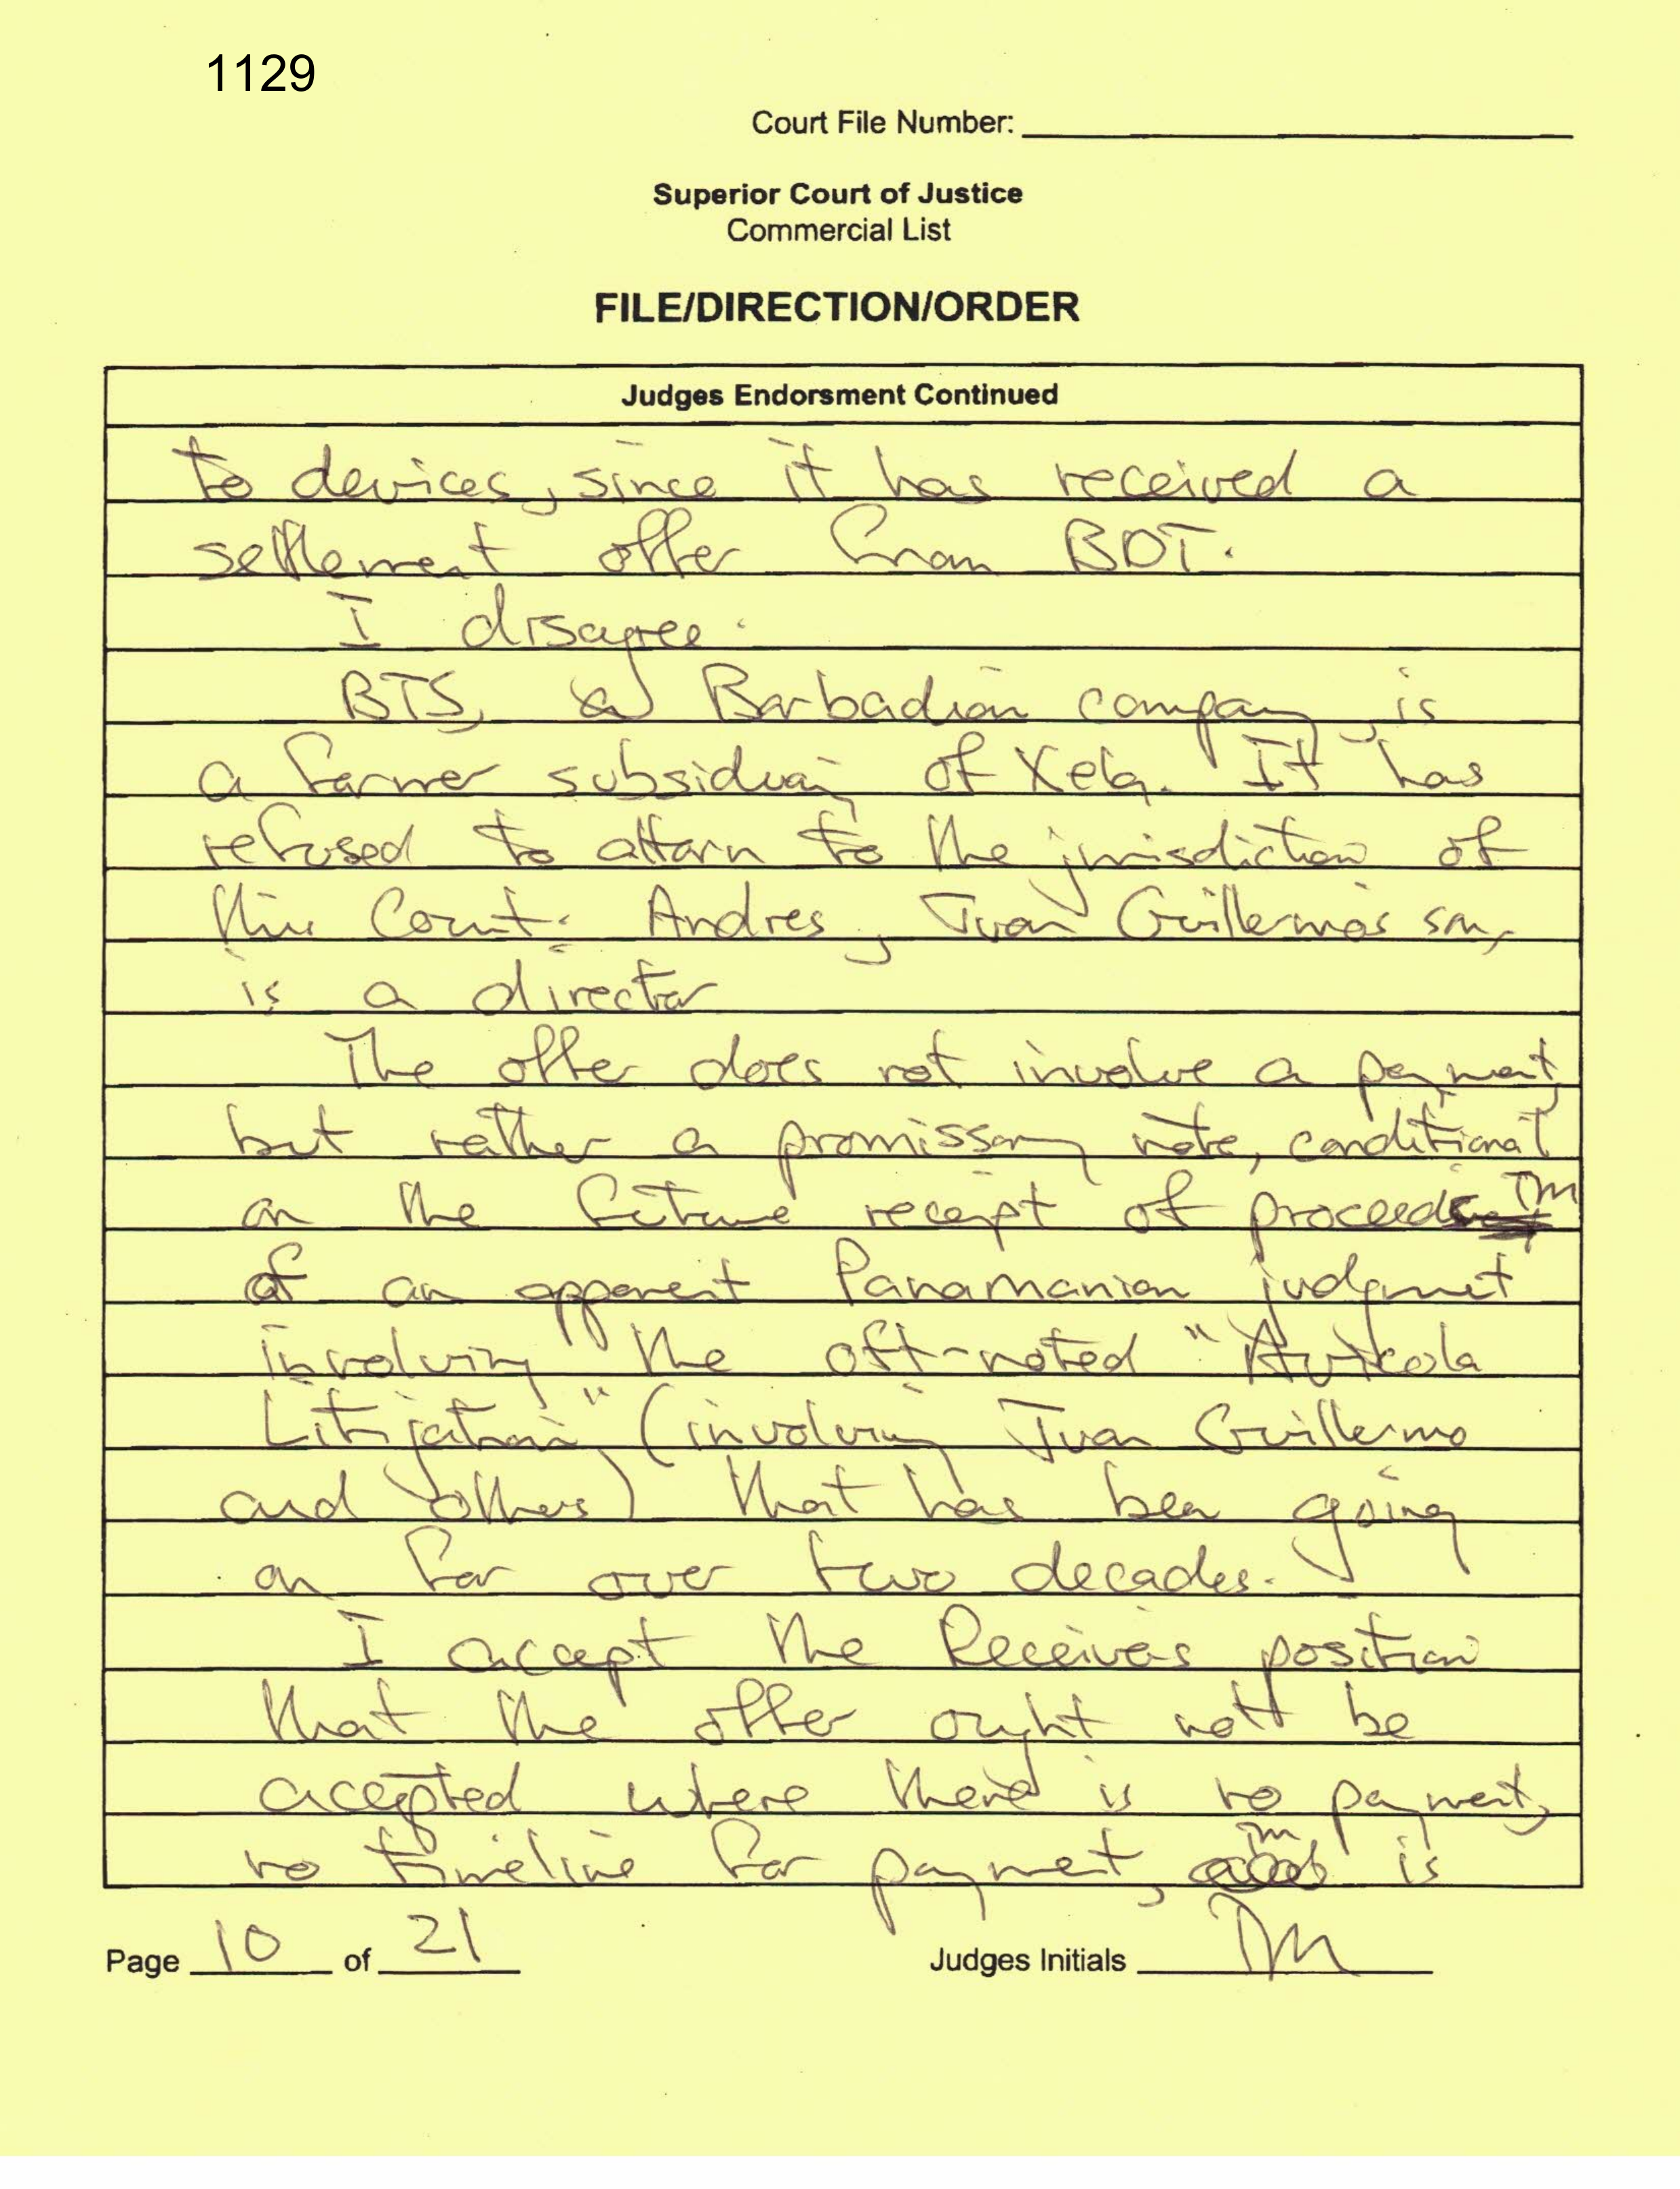 1129
Court File Number:
Superior Court of Justice
Commercial List
FILE/DIRECTION/ORDER
Judges Endorsment Continued
to devices, since it has received a
settlement offer from BDT.
I disagree.
BTS, a Barbadian company, is
a former subsidiary of Xela. It has
refused to attorn to the jurisdiction of
this Court. Andres, Juan Guillermo's son,
is a director
The offer does not involve a payment,
but rather a promissory note, conditional
on the future receipt of proceeds TM
of an apparent Panamanian judgment
involving the oft-noted "Avicola
Litigation" (involving Juan Guillermo
and others) that has been going
on for over two decades.
I accept the Receiver's position
that the offer ought not be
accepted where there is no payment,
TM
no timeline for payment, is
Page 10 of 21
Judges Initials TM